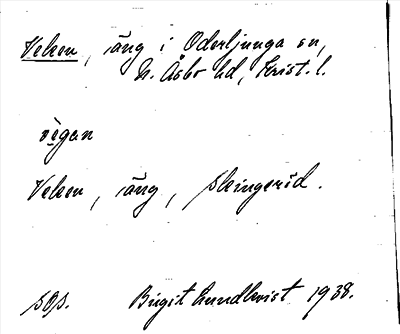 Veken, äng i Oderljunga sn,
N. Åsbo hd, Krist. l.
vẹ̀gan
Veken, äng, Skingeröd.
sOp. Birgit Lundkvist 1938.